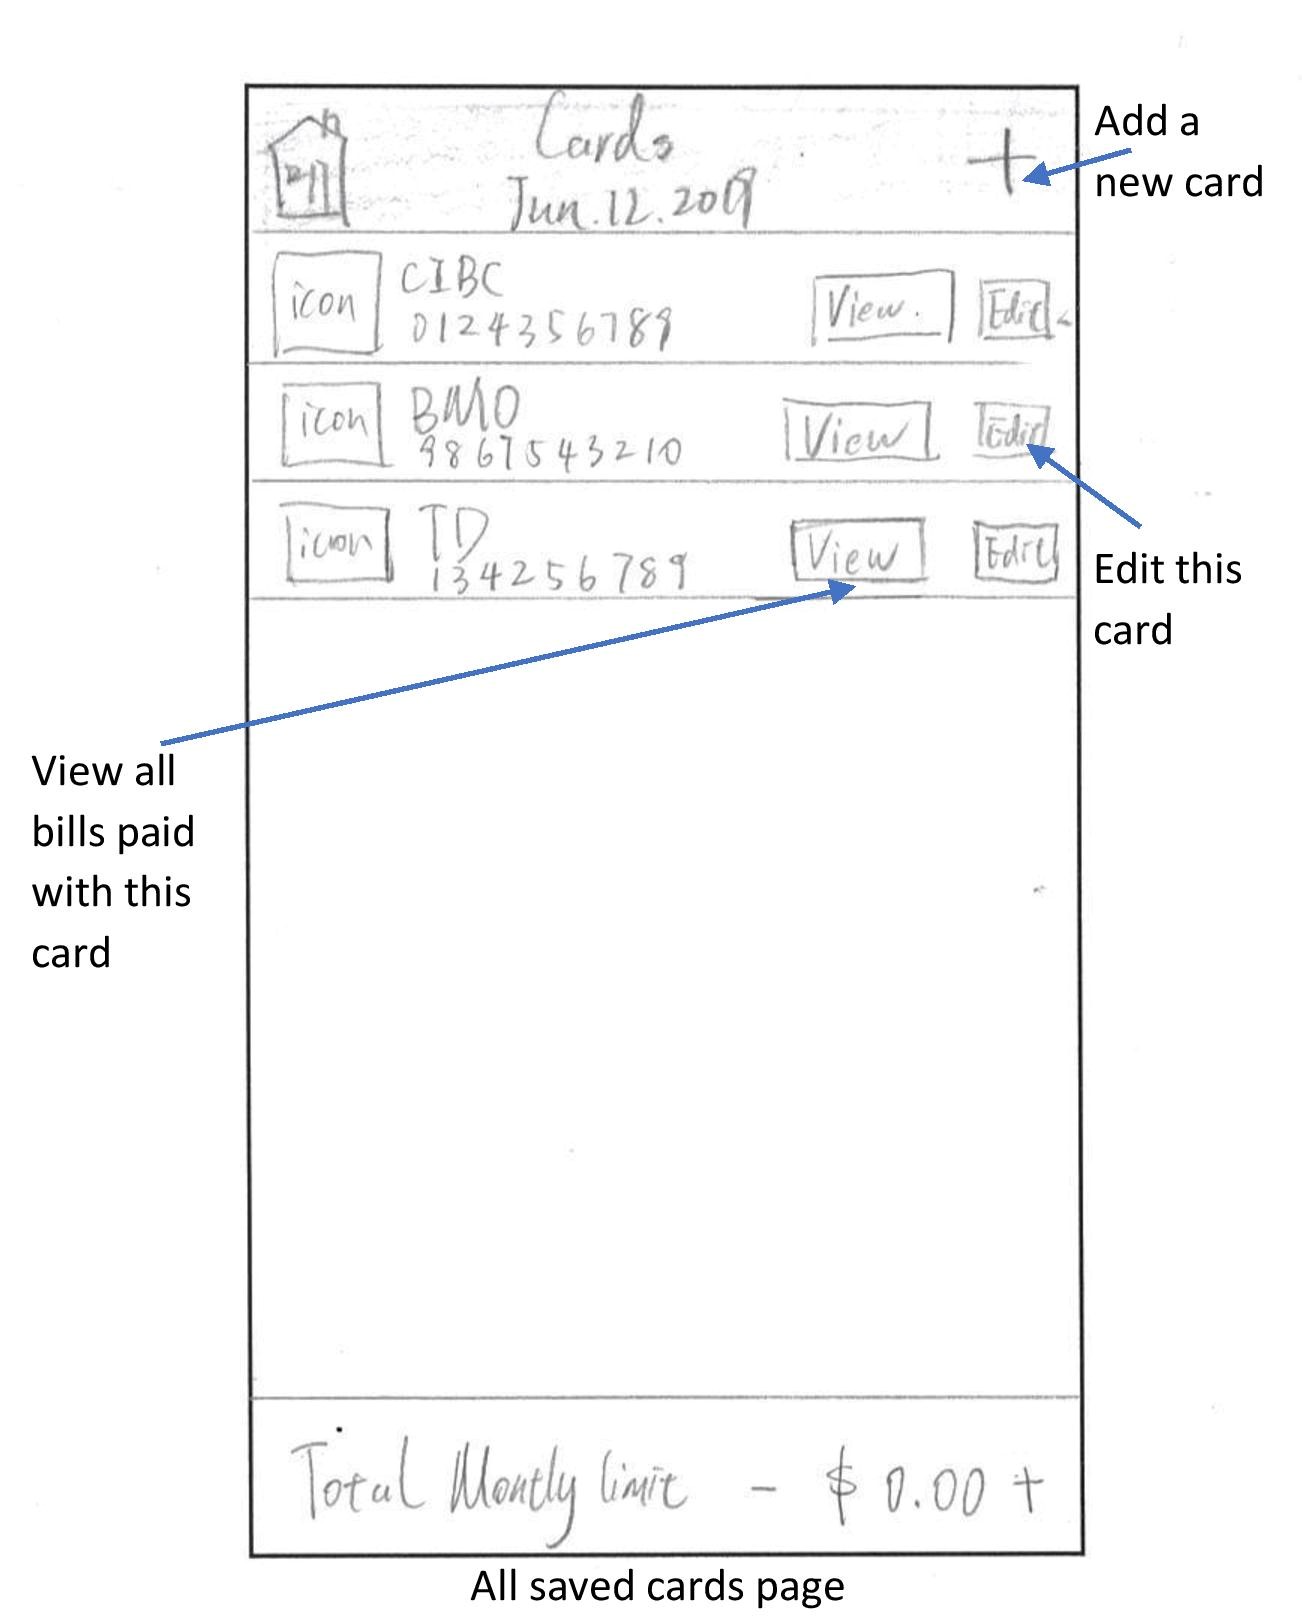 Cards
Jun.12.2019
Add a
new card
icon
CIBC
0124356789
View.
Edit
icon
BMO
9867543210
View
Edit
Edit this
card
icon
TD
134256789
View
Edit
View all
bills paid
with this
card
Total Montly limit - $ 0.00 +
All saved cards page